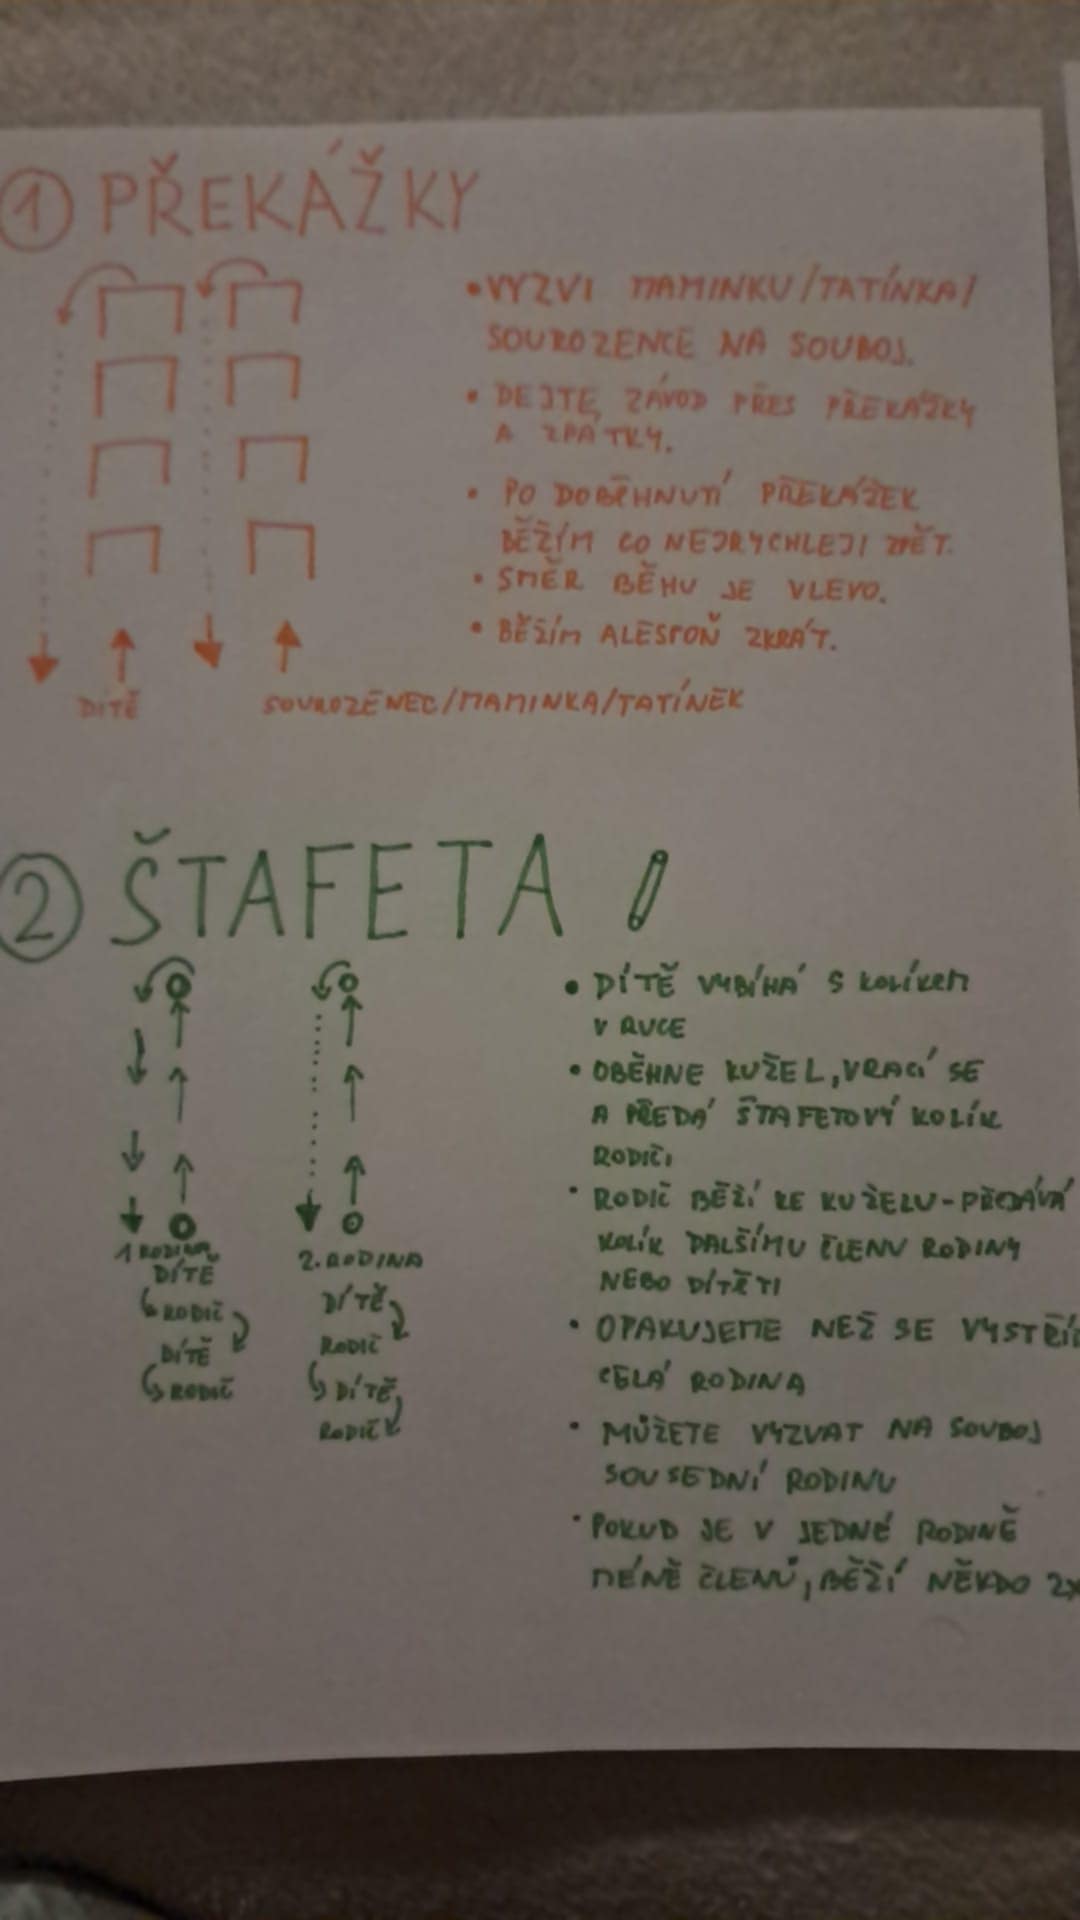 1 PŘEKÁŽKY
• VYZVI MAMINKU/TATÍNKA/
SOUROZENCE NA SOUBOJ.
• DEJTE ZÁVOD PŘES PŘEKÁŽKY
A ZPÁTKY.
• PO DOBĚHNUTÍ PŘEKÁŽEK
BĚŽÍM CO NEJRYCHLEJI ZPĚT.
• SMĚR BĚHU JE VLEVO.
• BĚŽÍM ALESPOŇ 2KRÁT.
DÍTĚ
SOUROZENEC/MAMINKA/TATÍNEK
2 ŠTAFETA
1 RODINA
DÍTĚ
RODIČ
DÍTĚ
RODIČ
2. RODINA
DÍTĚ
RODIČ
DÍTĚ
RODIČ
• DÍTĚ VYBÍHÁ S KOLÍKEM
V RUCE
• OBĚHNE KUŽEL, VRACÍ SE
A PŘEDÁ ŠTAFETOVÝ KOLÍK
RODIČI
• RODIČ BĚŽÍ KE KUŽELU - PŘEDÁVÁ
KOLÍK DALŠÍMU ČLENU RODINY
NEBO DÍTĚTI
• OPAKUJEME NEŽ SE VYSTŘÍD
CELÁ RODINA
• MŮŽETE VYZVAT NA SOUBOJ
SOUSEDNÍ RODINU
• POKUD JE V JEDNÉ RODINĚ
MÉNĚ ČLENŮ, BĚŽÍ NĚKDO 2X